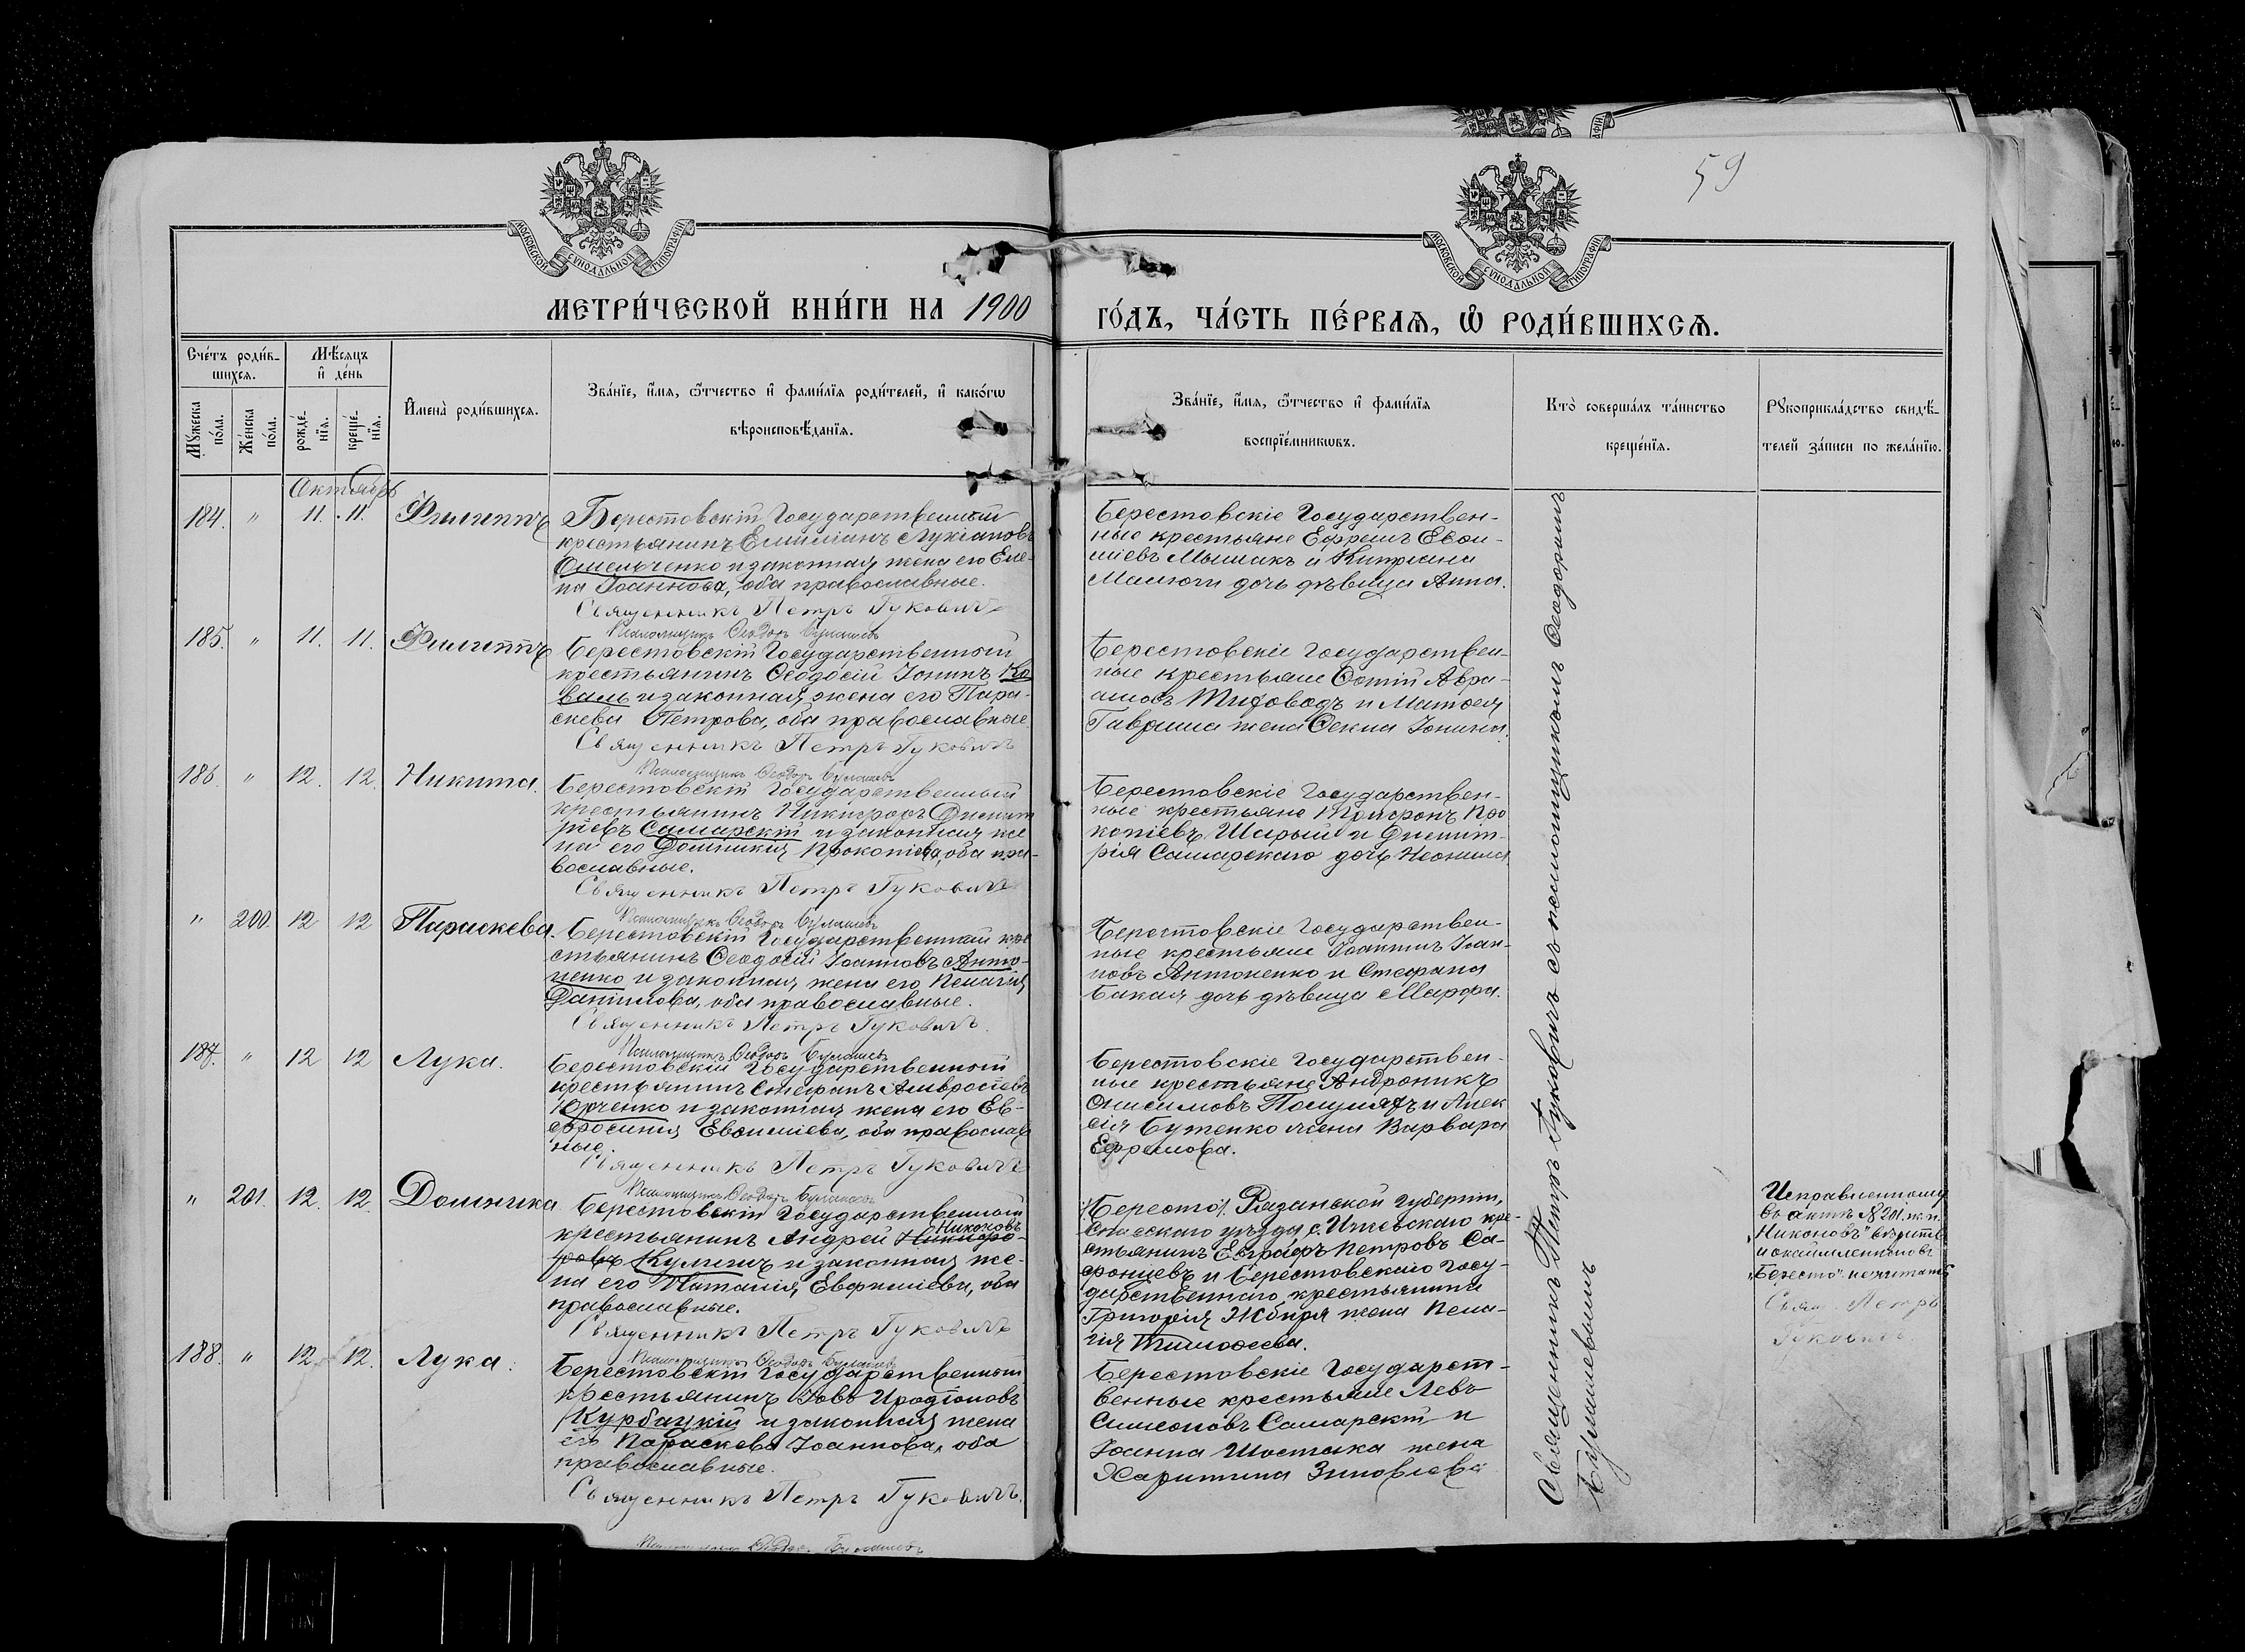 59
МОСКОВСКОЙ СѴНОДАЛЬНОЙ ТИПОГРАФІИ
МОСКОВСКОЙ СѴНОДАЛЬНОЙ ТИПОГРАФІИ
МЕТРИ́ЧЕСКОЙ КНИ́ГИ НА 1900 ГО́ДЪ, ЧА́СТЬ ПЕ́РВАѦ, Ѽ РОДИ́ВШИХСѦ.
Сче́тъ роди́в-
шихся.
Мѣ́сяцъ
и҆ де́нь
Мꙋ́жеска
по́ла.
Же́нска
по́ла.
рожде́-
нїѧ.
креще́-
нїѧ.
И҆мена̀ роди́вшихсѧ.
Зва́нїе, и҆́мѧ, ѻ҆́тчество и҆ фами́лїѧ роди́телей, и҆ како́гѡ
вѣроисповѣ́данїѧ.
Зва́нїе, и҆́мѧ, ѻ҆́тчество и҆ фами́лїѧ
воспрїе́мникѡвъ.
Кто̀ соверша́лъ та́инство
креще́нїѧ.
Рꙋкоприкла́дство свидѣ́-
телей за́писи по жела́нїю.
Октябрь
184. " 11. 11. Филиппъ
Берестовскій Государственный
крестьянинъ Емиліанъ Лукіановъ
Омельченко и законная жена его Еле-
на Іоаннова, оба православные.
Священникъ Петръ Гуковичъ
Псаломщикъ Ѳеодоръ Бумашевъ
Берестовскіе Государствен-
ные крестьяне Ефремъ Евѳи-
міевъ Мышакъ и Кипріана
дочь дѣвица Анна.
185. " 11. 11. Филиппъ
Берестовскій Государственный
крестьянинъ Ѳеодосій Іонинъ Ко-
валь и законная жена его Пара-
скева Петрова, оба православные
Священникъ Петръ Гуковичъ
Псаломщикъ Ѳеодоръ Бумашевъ
Берестовскіе Государствен-
ные крестьяне Фотій Авра-
амовъ и Матѳея
Гавриша жена Ѳекла Іонина.
186. " 12. 12. Никита.
Берестовскій Государственный
крестьянинъ Никифоръ Димит
ріевъ Самарскій и законная же
на его Домникія Прокопіева, оба пра-
вославные.
Священникъ Петръ Гуковичъ
Псаломщикъ Ѳеодоръ Бумашевъ
Берестовскіе Государствен-
ные крестьяне Трифонъ Про
копіевъ Шарый и Димит-
рія Самарскаго дочь Неонила
" 200. 12 12 Параскева.
Берестовскій Государственный кре
стьянинъ Ѳеодосій Іоанновъ Анто-
ненко и законная жена его Пелагія
Данилова, оба православные.
Священникъ Петръ Гуковичъ.
Псаломщикъ Ѳеодоръ Бумашевъ
Берестовскіе Государствен-
ные крестьяне Іоакимъ Іоан-
новъ Антоненко и Стефана
Бакая дочь дѣвица Марфа.
187. " 12 12 Лука.
Берестовскій Государственный
крестьянинъ Стефанъ Амвросіевъ
Юрченко и законная жена его Ев-
фросинія Евѳиміева, оба православ
ные.
Священникъ Петръ Гуковичъ
Псаломщикъ Ѳеодоръ Бумашевъ
Берестовскіе Государствен-
ные крестьяне Андроникъ
Онисимовъ и Алек
сія Бутенко жена Варвара
Ефремова.
" 201. 12. 12. Домника
Берестовскій Государственный
Никоновъ
крестьянинъ Андрей Никифо-
ровъ Куличъ и законная же-
на его Наталія Евфиміева, оба
православные.
Священникъ Петръ Гуковичъ
Псаломщикъ Ѳеодоръ Бумашевъ
/Бересто/. Рязанской губерніи,
Спасскаго уѣзда с. Ижевскаго кре-
стьянинъ Евграфъ Петровъ Са-
фонцевъ и Берестовскаго Госу-
дарственнаго крестьянина
Григорія Жбыря жена Пела-
гія Тимоѳеева.
Исправленному
въ актѣ № 201. м. п.
„Никоновъ" вѣрить
и окаймленное въ
„Бересто" не читать
Свящ. Петръ
Гуковичъ.
188. " 12. 12. Лука.
Берестовскій Государственный
крестьянинъ Іовъ Иродіоновъ
Курбацкій и законная жена
его Параскева Іоаннова, оба
православные.
Священникъ Петръ Гуковичъ.
Псаломщикъ Ѳеодоръ Бумашевъ
Берестовскіе Государст-
венные крестьяне Левъ
Симеоновъ Самарскій и
Іоанна Шостака жена
Харитина Зиновіева
Священникъ Петръ Гуковичъ съ псаломщикомъ Ѳеодоромъ
Бумашевымъ